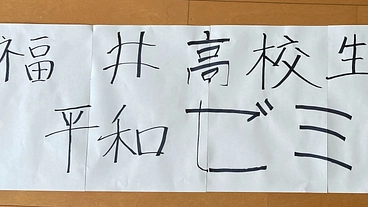 福井高校生
平和ゼミ